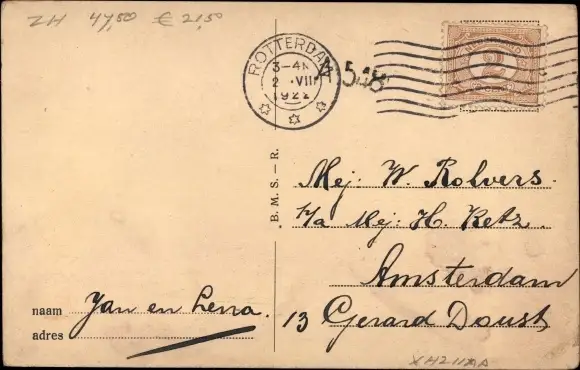 ZH 47,50 € 21,50
ROTTERDAM
VII
1922
548
2
B. M. S. – R.
Mej. W. Rolvers.
h/a Mej. H. Ketz.
Amsterdam
13 Gerard Doust
naam Jan en Lena.
adres